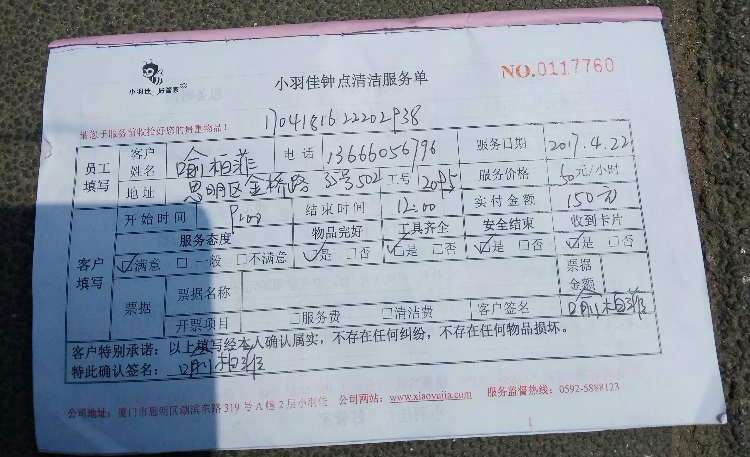 小羽佳 居管家
小羽佳钟点清洁服务单
NO.0117760
请您于服务前收拾好您的贵重物品!
员工填写 客户姓名 喻柏菲 电话 13666056796 服务日期 2017.4.22
地址 思明区金桥路 35号502 工号 服务价格 50元/小时
开始时间 结束时间 12:00 实付金额 150元
客户填写 服务态度 物品完好 工具齐全 安全结束 收到卡片
☑满意 □一般 □不满意 ☑是 □否 ☑是 □否 ☑是 □否 ☑是 □否
票据 票据名称 票据金额
开票项目 □服务费 □清洁费 客户签名 喻柏菲
客户特别承诺:以上填写经本人确认属实,不存在任何纠纷,不存在任何物品损坏。
特此确认签名: 喻柏菲
公司地址:厦门市思明区湖滨东路319号A幢2层小羽佳 公司网站:www.xiaoyujia.com 服务监督热线:0592-5888123